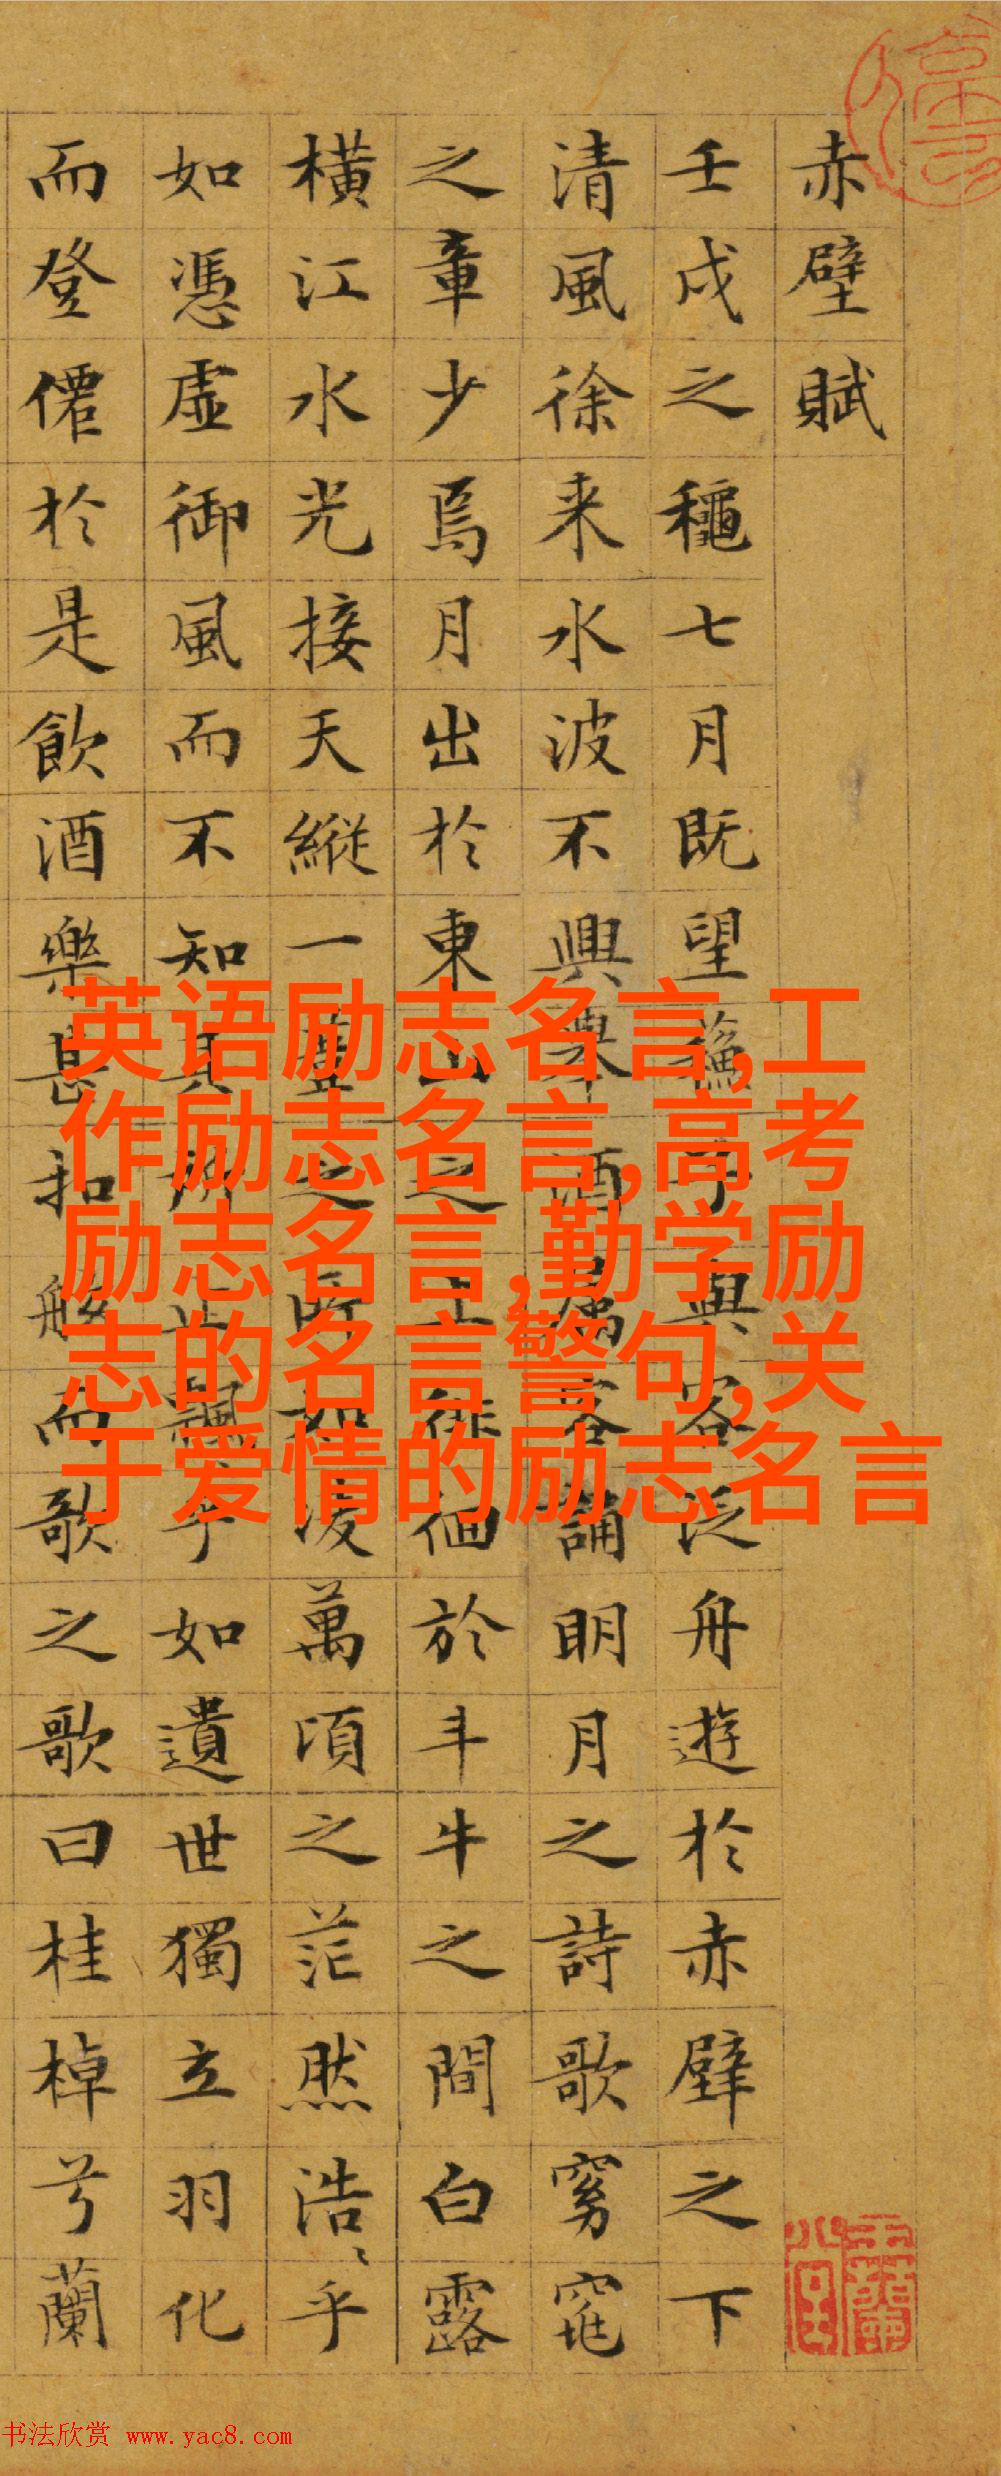 赤壁賦
壬戌之穐七月既望蘓子與客泛舟遊於赤壁之下
清風徐来水波不興舉酒属客誦明月之詩歌窈窕
之章少焉月出於東山之上徘徊於斗牛之間白露
橫江水光接天縱一葦之所如凌萬頃之茫然浩〻乎
如憑虛御風而不知其所止飄乎如遺世獨立羽化
而登僊於是飲酒樂甚扣舷而歌之歌曰桂棹兮蘭
英语励志名言,工
作励志名言,高考
励志名言,勤学励
志的名言警句,关
于爱情的励志名言
书法欣赏 www.yac8.com